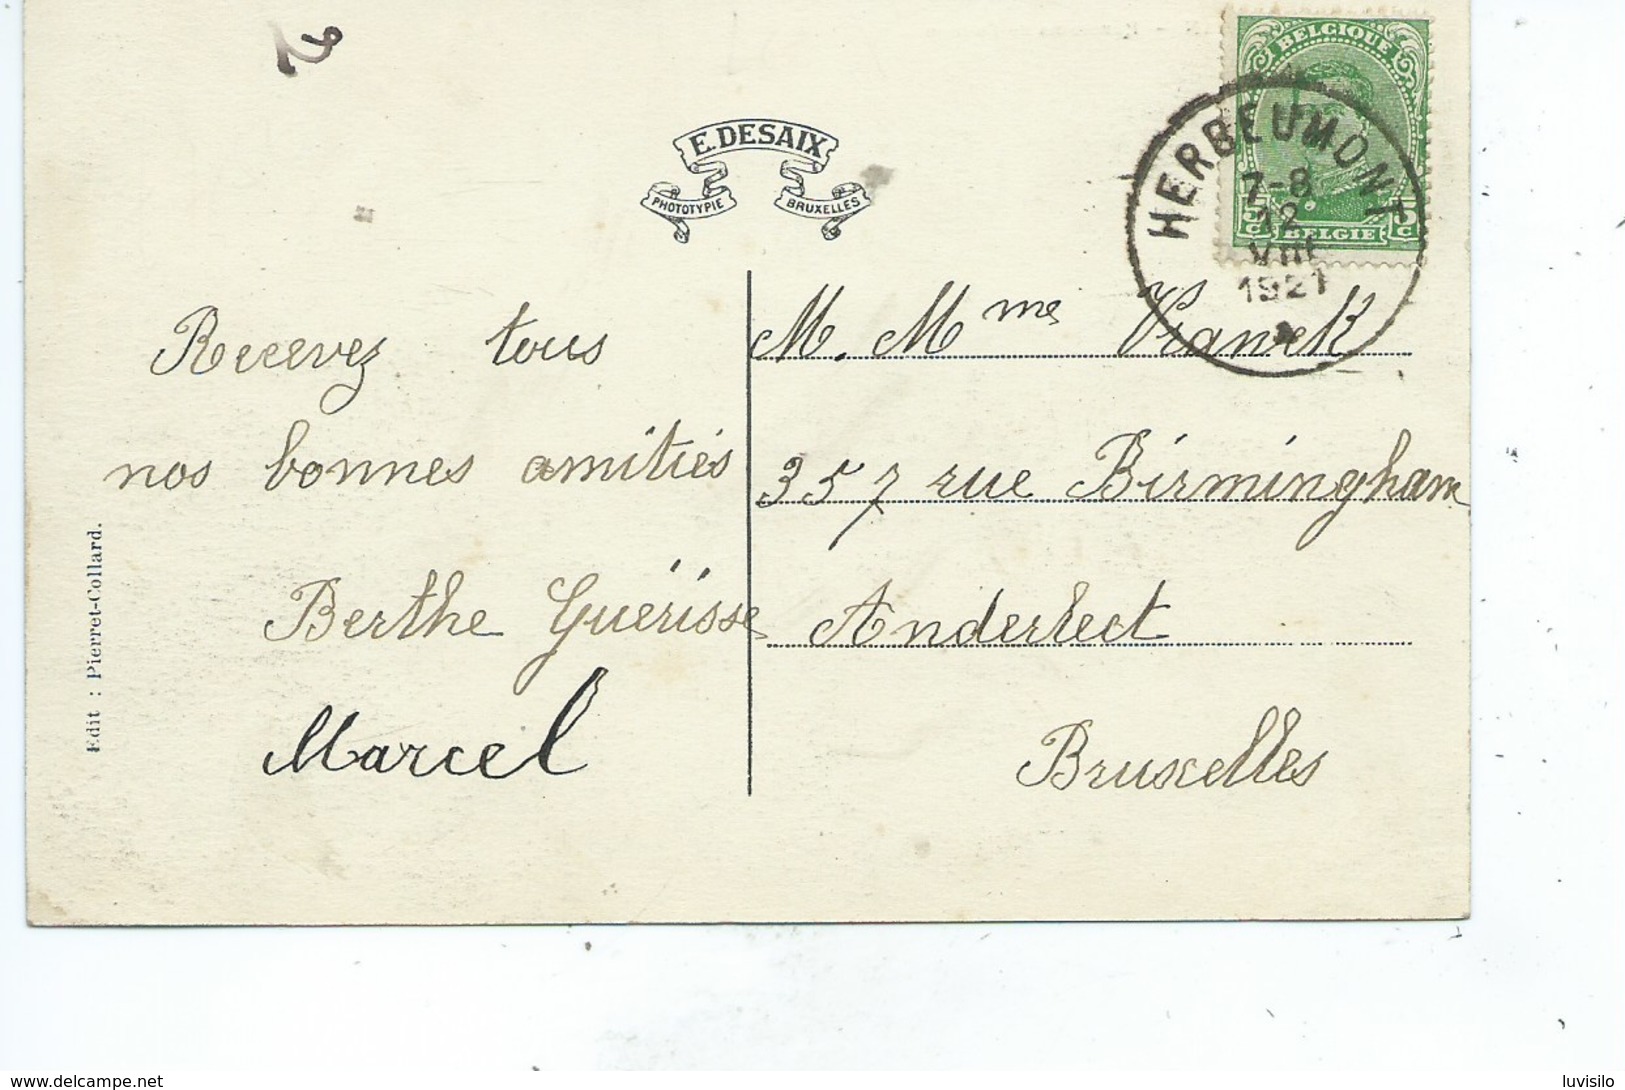 BELGIQUE
5 C 5 C
BELGIE
HERBEUMONT
7-8
12
VIII
1921
E. DESAIX
PHOTOTYPIE BRUXELLES
Recevez tous
nos bonnes amitiés
Berthe Guërisse
Marcel
M. Mme Vranck
357 rue Birmingham
Anderlect
Bruxelles
Edit : Pierret-Collard.
www.delcampe.net
luvisilo